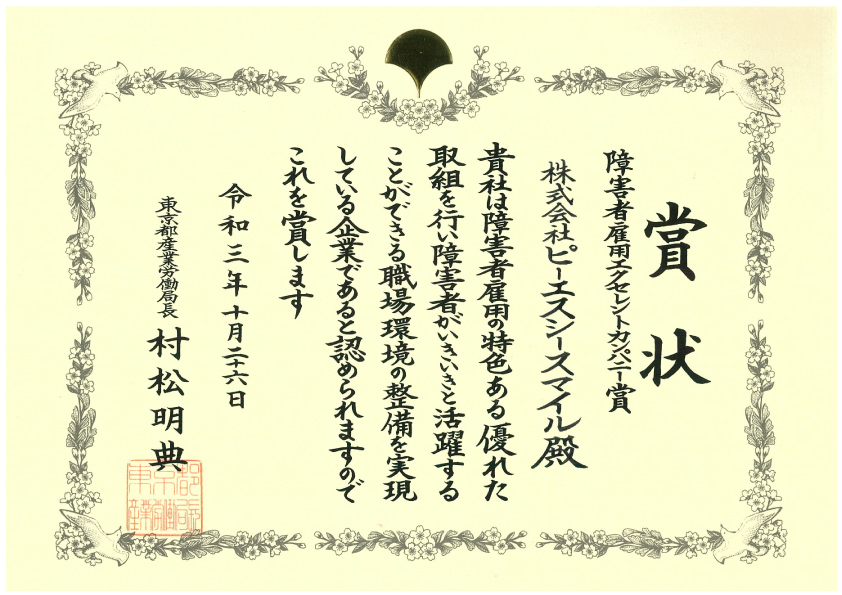 賞状
障害者雇用エクセレントカンパニー賞
株式会社ピーエスシースマイル殿
貴社は障害者雇用の特色ある優れた
取組を行い障害者がいきいきと活躍する
ことができる職場環境の整備を実現
している企業であると認められますので
これを賞します
令和三年十月二十六日
東京都産業労働局長
村松明典